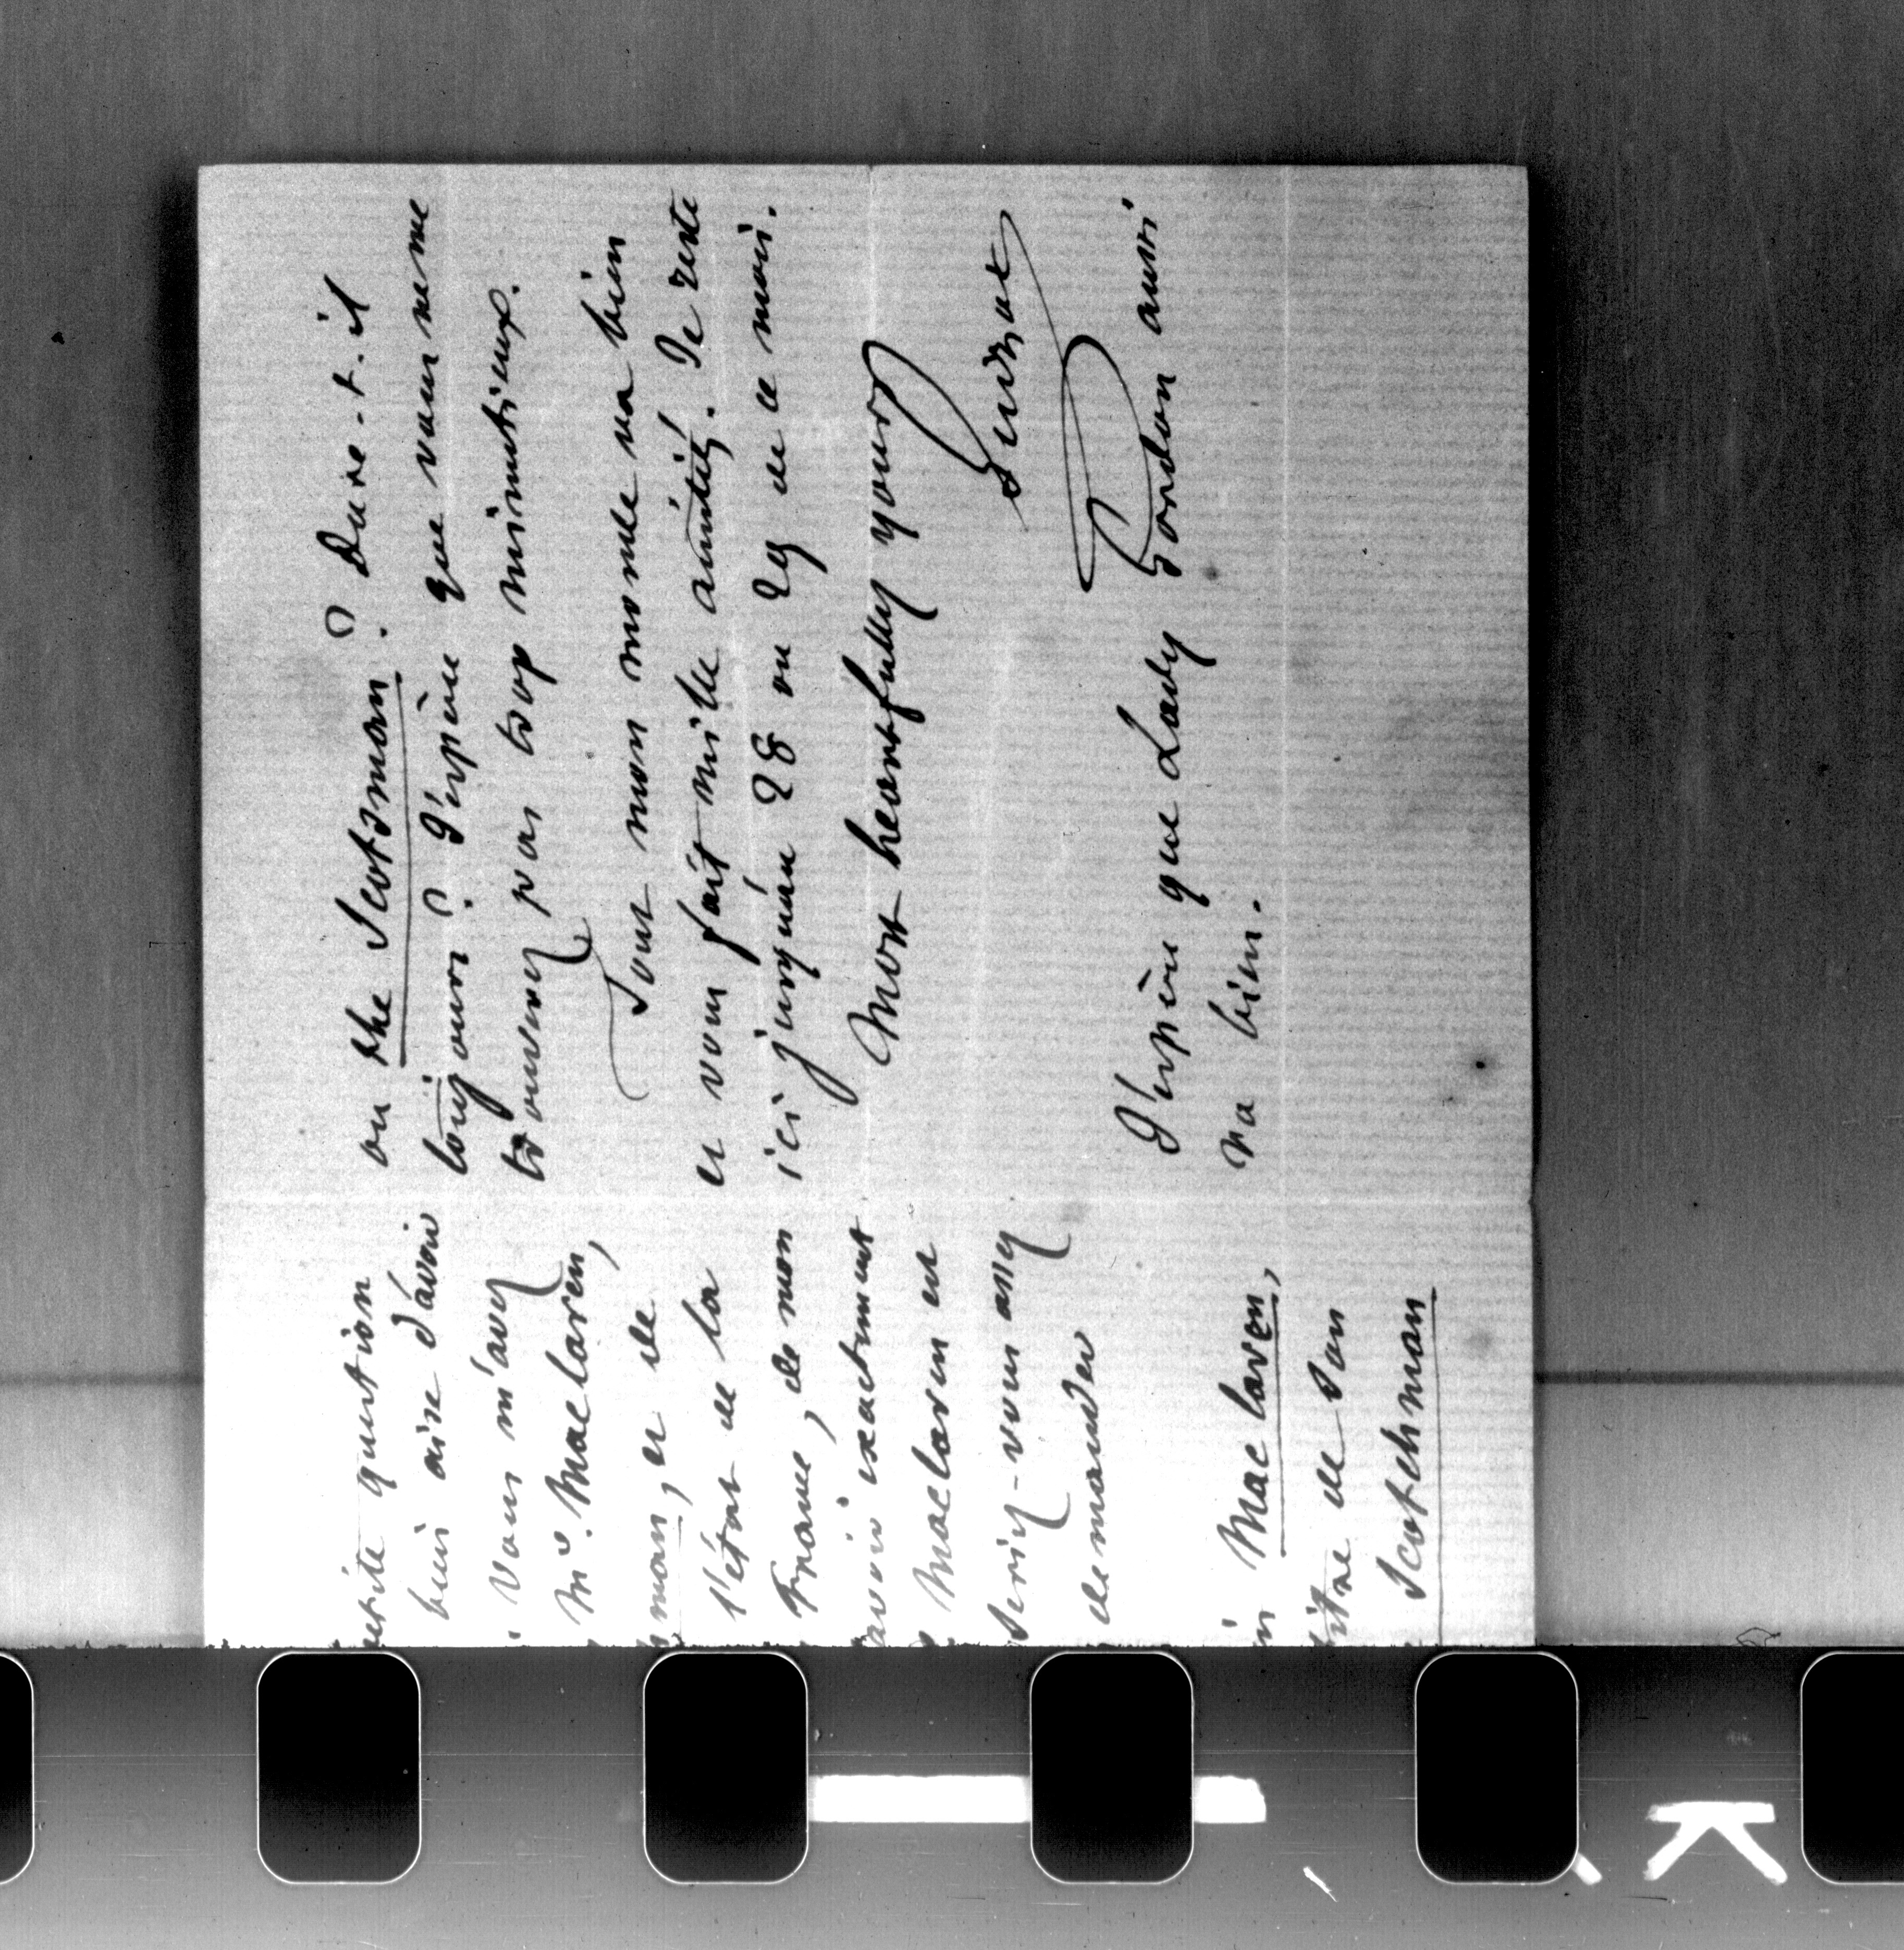 petite question
bien aise d'avoir
Vous m'avez
Mr. Maclaren,
man, et de
l'état de la
France, de mon
avoir exactement
Maclaren est
Seriez-vous assez
demander
Mac laren,
titre de son
Scotchman
ou the Scotsman ? Dure-t-il
toujours ? J'espère que vous ne me
trouverez pas trop minutieux.
Tout mon monde va bien
et vous fait mille amitiés. Je reste
ici jusqu'au 28 ou 29 de ce mois.
Most heartfully yours
Guizot
J'espère que Lady Gordon aussi
va bien.